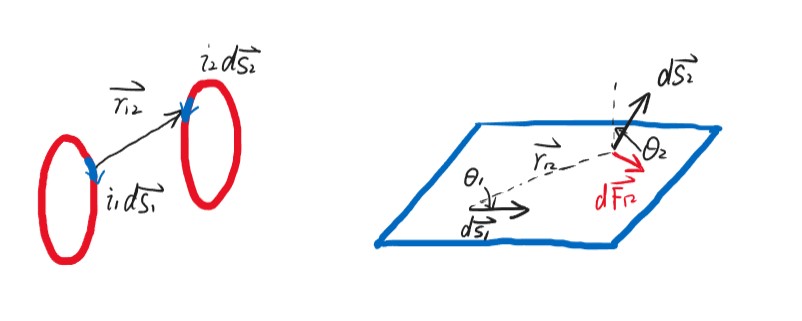 i₂dS₂⃗
r₁₂⃗
i₁dS₁⃗
dS₂⃗
r₁₂⃗
θ₂
θ₁
dF₁₂⃗
dS₁⃗